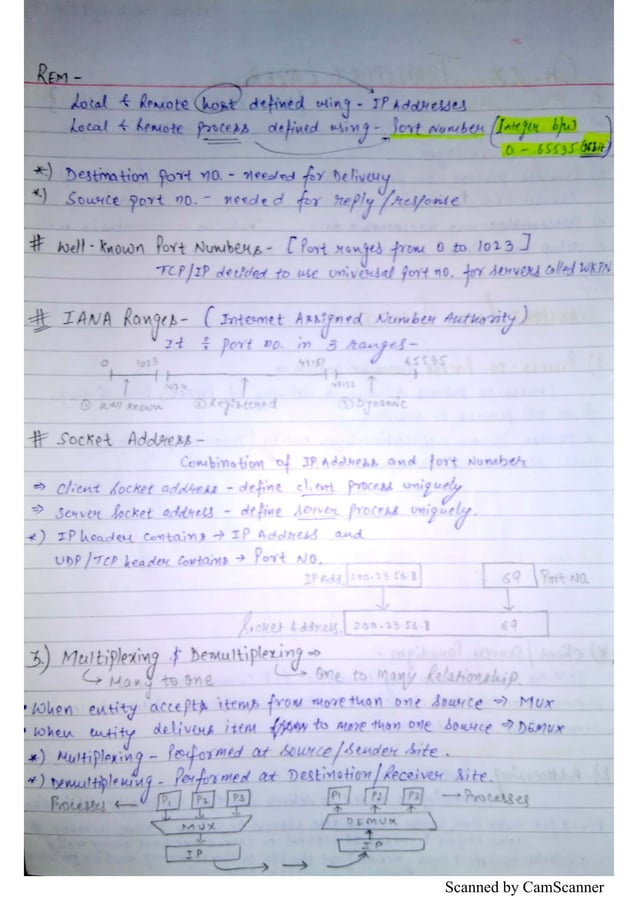 REM -
Local & Remote host defined using - IP Addresses
Local & Remote Process defined using - Port Number (Integer b/w
0 - 65535 (16 bit)
*) Destination port no. - needed for Delivery
*) Source port no. - needed for reply/response
# Well-Known Port Numbers - [Port ranges from 0 to 1023]
TCP/IP decided to use universal port no. for servers called WKPN
# IANA Ranges - (Internet Assigned Number Authority)
It ÷ port no. in 3 ranges -
0 1023 49151 65535
1024 49152
① Well known ② Registered ③ Dynamic
# Socket Address -
Combination of IP Address and Port Number
⇒ Client Socket address - define client process uniquely
⇒ Server Socket address - define server process uniquely.
*) IP header contains → IP Address and
UDP/TCP header contains → Port No.
IP Add. 200.23.56.8 69 Port No.
Socket Address 200.23.56.8 69
3.) Multiplexing & Demultiplexing ⇒
Many to one One to Many Relationship.
• When entity accepts items from more than one source ⇒ MUX
• When entity delivers item to more than one source ⇒ DEMUX
*) Multiplexing - Performed at source/sender site.
*) Demultiplexing - Performed at Destination/Receiver site.
Processes ← P1 P2 P3 P1 P2 P3 → Processes
MUX DEMUX
IP IP
Scanned by CamScanner